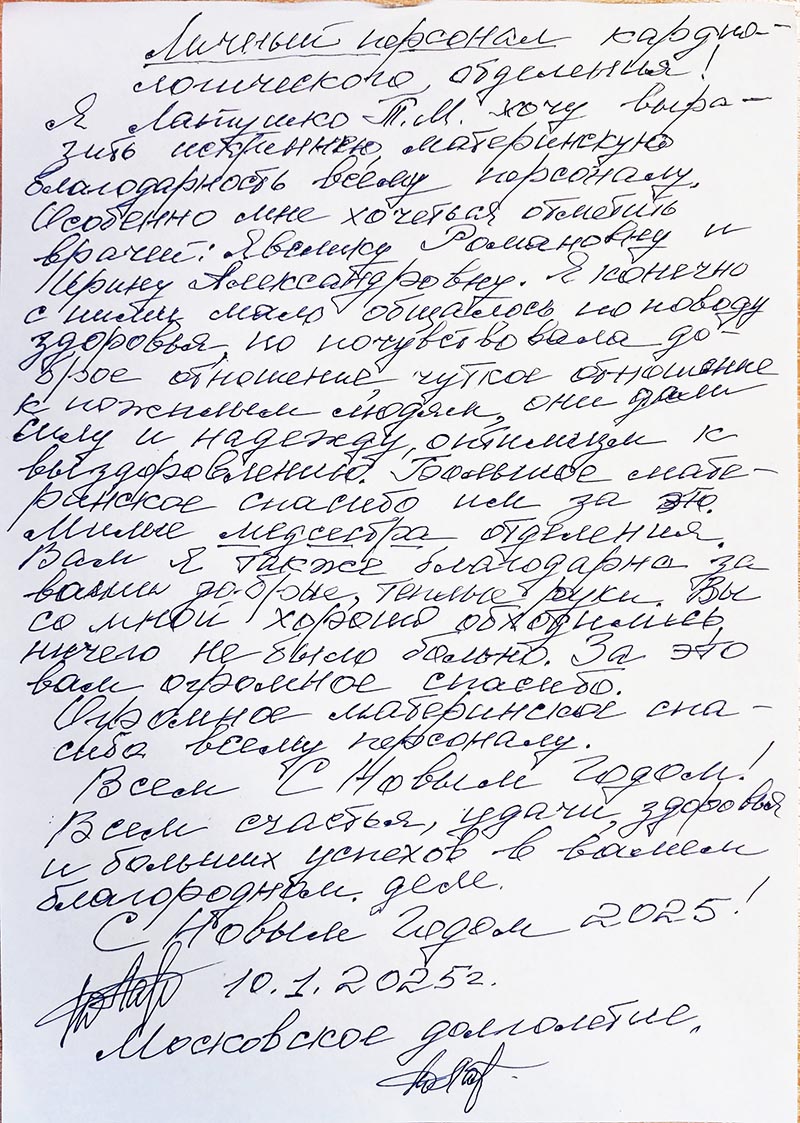 Личный персонал кардио-
логического отделения!
Я Латушко Т.М. хочу выра-
зить искреннею, материнскую
благодарность всему персоналу.
Особенно мне хочеться отметить
врачей: Явелику Романовну и
Ирину Александровну. Я конечно
с ними мало общалось по поводу
здоровья, но почувствовала до-
брое отношение, чуткое отношение
к пожилым людям, они дали
силу и надежду, оптимизм к
выздоровлению. Большое мате-
ринское спасибо им за это.
Милые медсестра отделения.
Вам я также благодарна за
ваши добрые, теплые руки. Вы
со мной хорошо обходились,
ничего не было больно. За это
вам огромное спасибо.
Огромное материнское спа-
сибо всему персоналу.
Всем С Новым Годом!
Всем счастья, удачи, здоровья
и больших успехов в вашем
благородном деле.
С Новым Годом 2025!
10.1.2025г.
Московское долголетие.